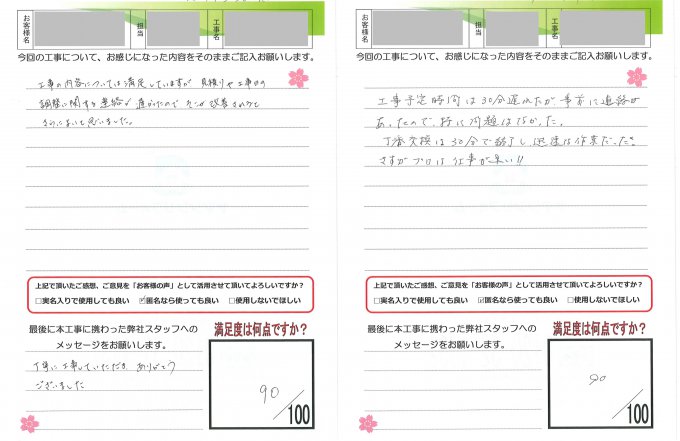 お客様名
担当
工事名
今回の工事について、お感じになった内容をそのままご記入お願いします。
工事の内容については満足していますが 見積りや工事日の
調整に関する連絡が遅かったので そこが改善されると
さらによいと思いました。
上記で頂いたご感想、ご意見を「お客様の声」として活用させて頂いてよろしいですか?
□実名入りで使用しても良い ☑匿名なら使っても良い □使用しないでほしい
最後に本工事に携わった弊社スタッフへの
メッセージをお願いします。
丁寧に工事していただき ありがとう
ございました
満足度は何点ですか?
90
/100
お客様名
担当
工事名
今回の工事について、お感じになった内容をそのままご記入お願いします。
工事予定時間は30分遅れたが 事前に連絡が
あったので、特に問題はなかった。
丁番交換は30分で終了し 迅速な作業だった。
さすがプロは仕事が早い!!
上記で頂いたご感想、ご意見を「お客様の声」として活用させて頂いてよろしいですか?
□実名入りで使用しても良い ☑匿名なら使っても良い □使用しないでほしい
最後に本工事に携わった弊社スタッフへの
メッセージをお願いします。
満足度は何点ですか?
90
/100